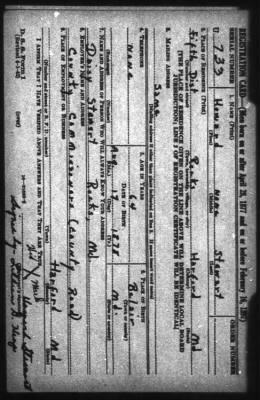 REGISTRATION CARD—(Men born on or after April 28, 1877 and on or before February 16, 1897)
SERIAL NUMBER
1. NAME (Print)
ORDER NUMBER
U 733
Howard None Stewart
(First) (Middle) (Last)
2. PLACE OF RESIDENCE (Print)
Fifth Dist. Rocks, Harford Md
(Number and street) (Town, township, village, or city) (County) (State)
[THE PLACE OF RESIDENCE GIVEN ON THE LINE ABOVE WILL DETERMINE LOCAL BOARD
JURISDICTION; LINE 2 OF REGISTRATION CERTIFICATE WILL BE IDENTICAL]
3. MAILING ADDRESS
Same
(Mailing address if other than place indicated on line 2. If same insert word same)
4. TELEPHONE
None
5. AGE IN YEARS
64
DATE OF BIRTH
Aug 17 1878
(Mo.) (Day) (Yr.)
6. PLACE OF BIRTH
Belair
(Town or county)
Md.
(State or country)
7. NAME AND ADDRESS OF PERSON WHO WILL ALWAYS KNOW YOUR ADDRESS
Daisy Stewart Rocks, Md
8. EMPLOYER'S NAME AND ADDRESS
County Commissioners (County Road)
9. PLACE OF EMPLOYMENT OR BUSINESS
Harford Md
(Number and street or R. F. D. number) (Town) (County) (State)
I AFFIRM THAT I HAVE VERIFIED ABOVE ANSWERS AND THAT THEY ARE TRUE.
D. S. S. Form 1
(Revised 4-1-42) (over)
Howard Stewart
his X mark
Signed by